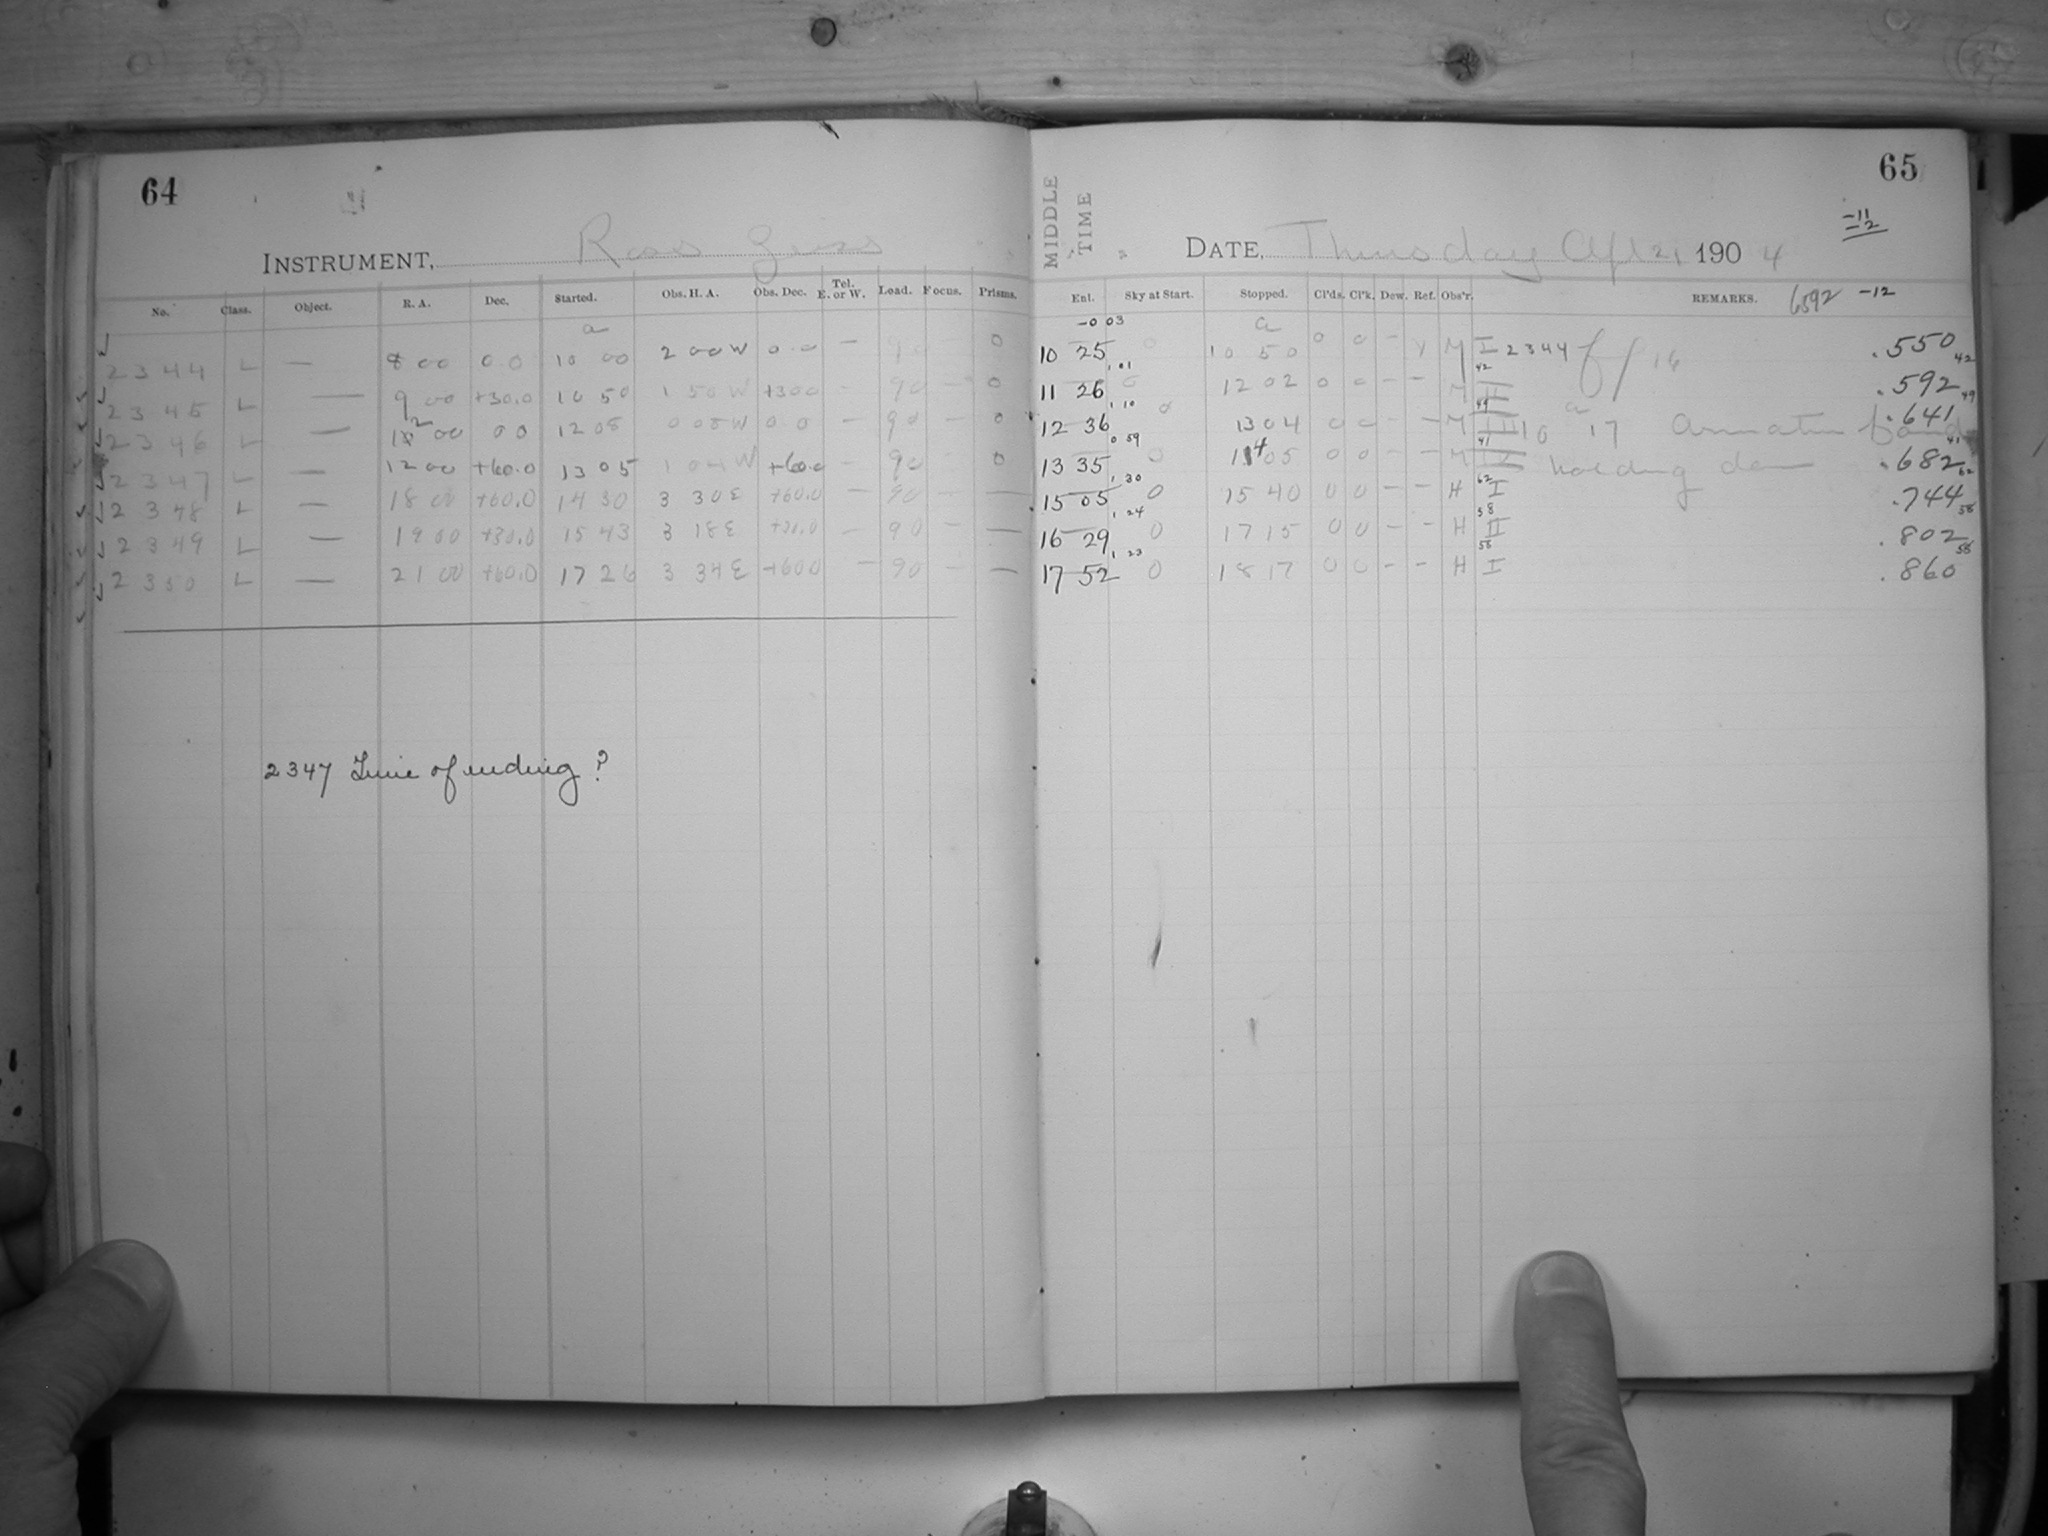 64
INSTRUMENT, Ross Zeiss
No. Class. Object. R. A. Dec. Started. Obs. H. A. Obs. Dec. Tel. E. or W. Load. Focus. Prisms.
a
2344 L — 8 00 0.0 10 00 2 00 W 0.0 — 90 — 0
2345 L — 9 00 +30.0 10 50 1 50 W +30.0 — 90 — 0
2346 L — 12 00 0.0 12 08 0 08 W 0.0 — 90 — 0
2347 L — 12 00 +60.0 13 05 1 04 W +60.0 — 90 — 0
2348 L — 18 00 +60.0 14 30 3 30 E +60.0 — 90 — —
2349 L — 19 00 +30.0 15 43 3 18 E +30.0 — 90 — —
2350 L — 21 00 +60.0 17 26 3 34 E +60.0 — 90 — —
2347 Time of ending?
65
MIDDLE TIME
DATE, Thursday Apl 21, 1904
-11
-2
Ent. Sky at Start. Stopped. Cl'ds. Cl'k. Dew. Ref. Obs'r. REMARKS. 6592 -12
-0 03 a
10 25 0 10 50 0 0 - Y M I 2344 f/16 .550
1 01 42 42
11 26 0 12 02 0 0 - - M II .592
1 10 49 49
12 36 0 13 04 0 0 - - M III 10 a 17 Armature band .641
0 59 41 41
13 35 0 14 05 0 0 - - M holding down .682
1 30 62 62
15 05 0 15 40 0 0 - - H I .744
1 24 58 58
16 29 0 17 15 0 0 - - H II .802
1 23 58 58
17 52 0 18 17 0 0 - - H I .860